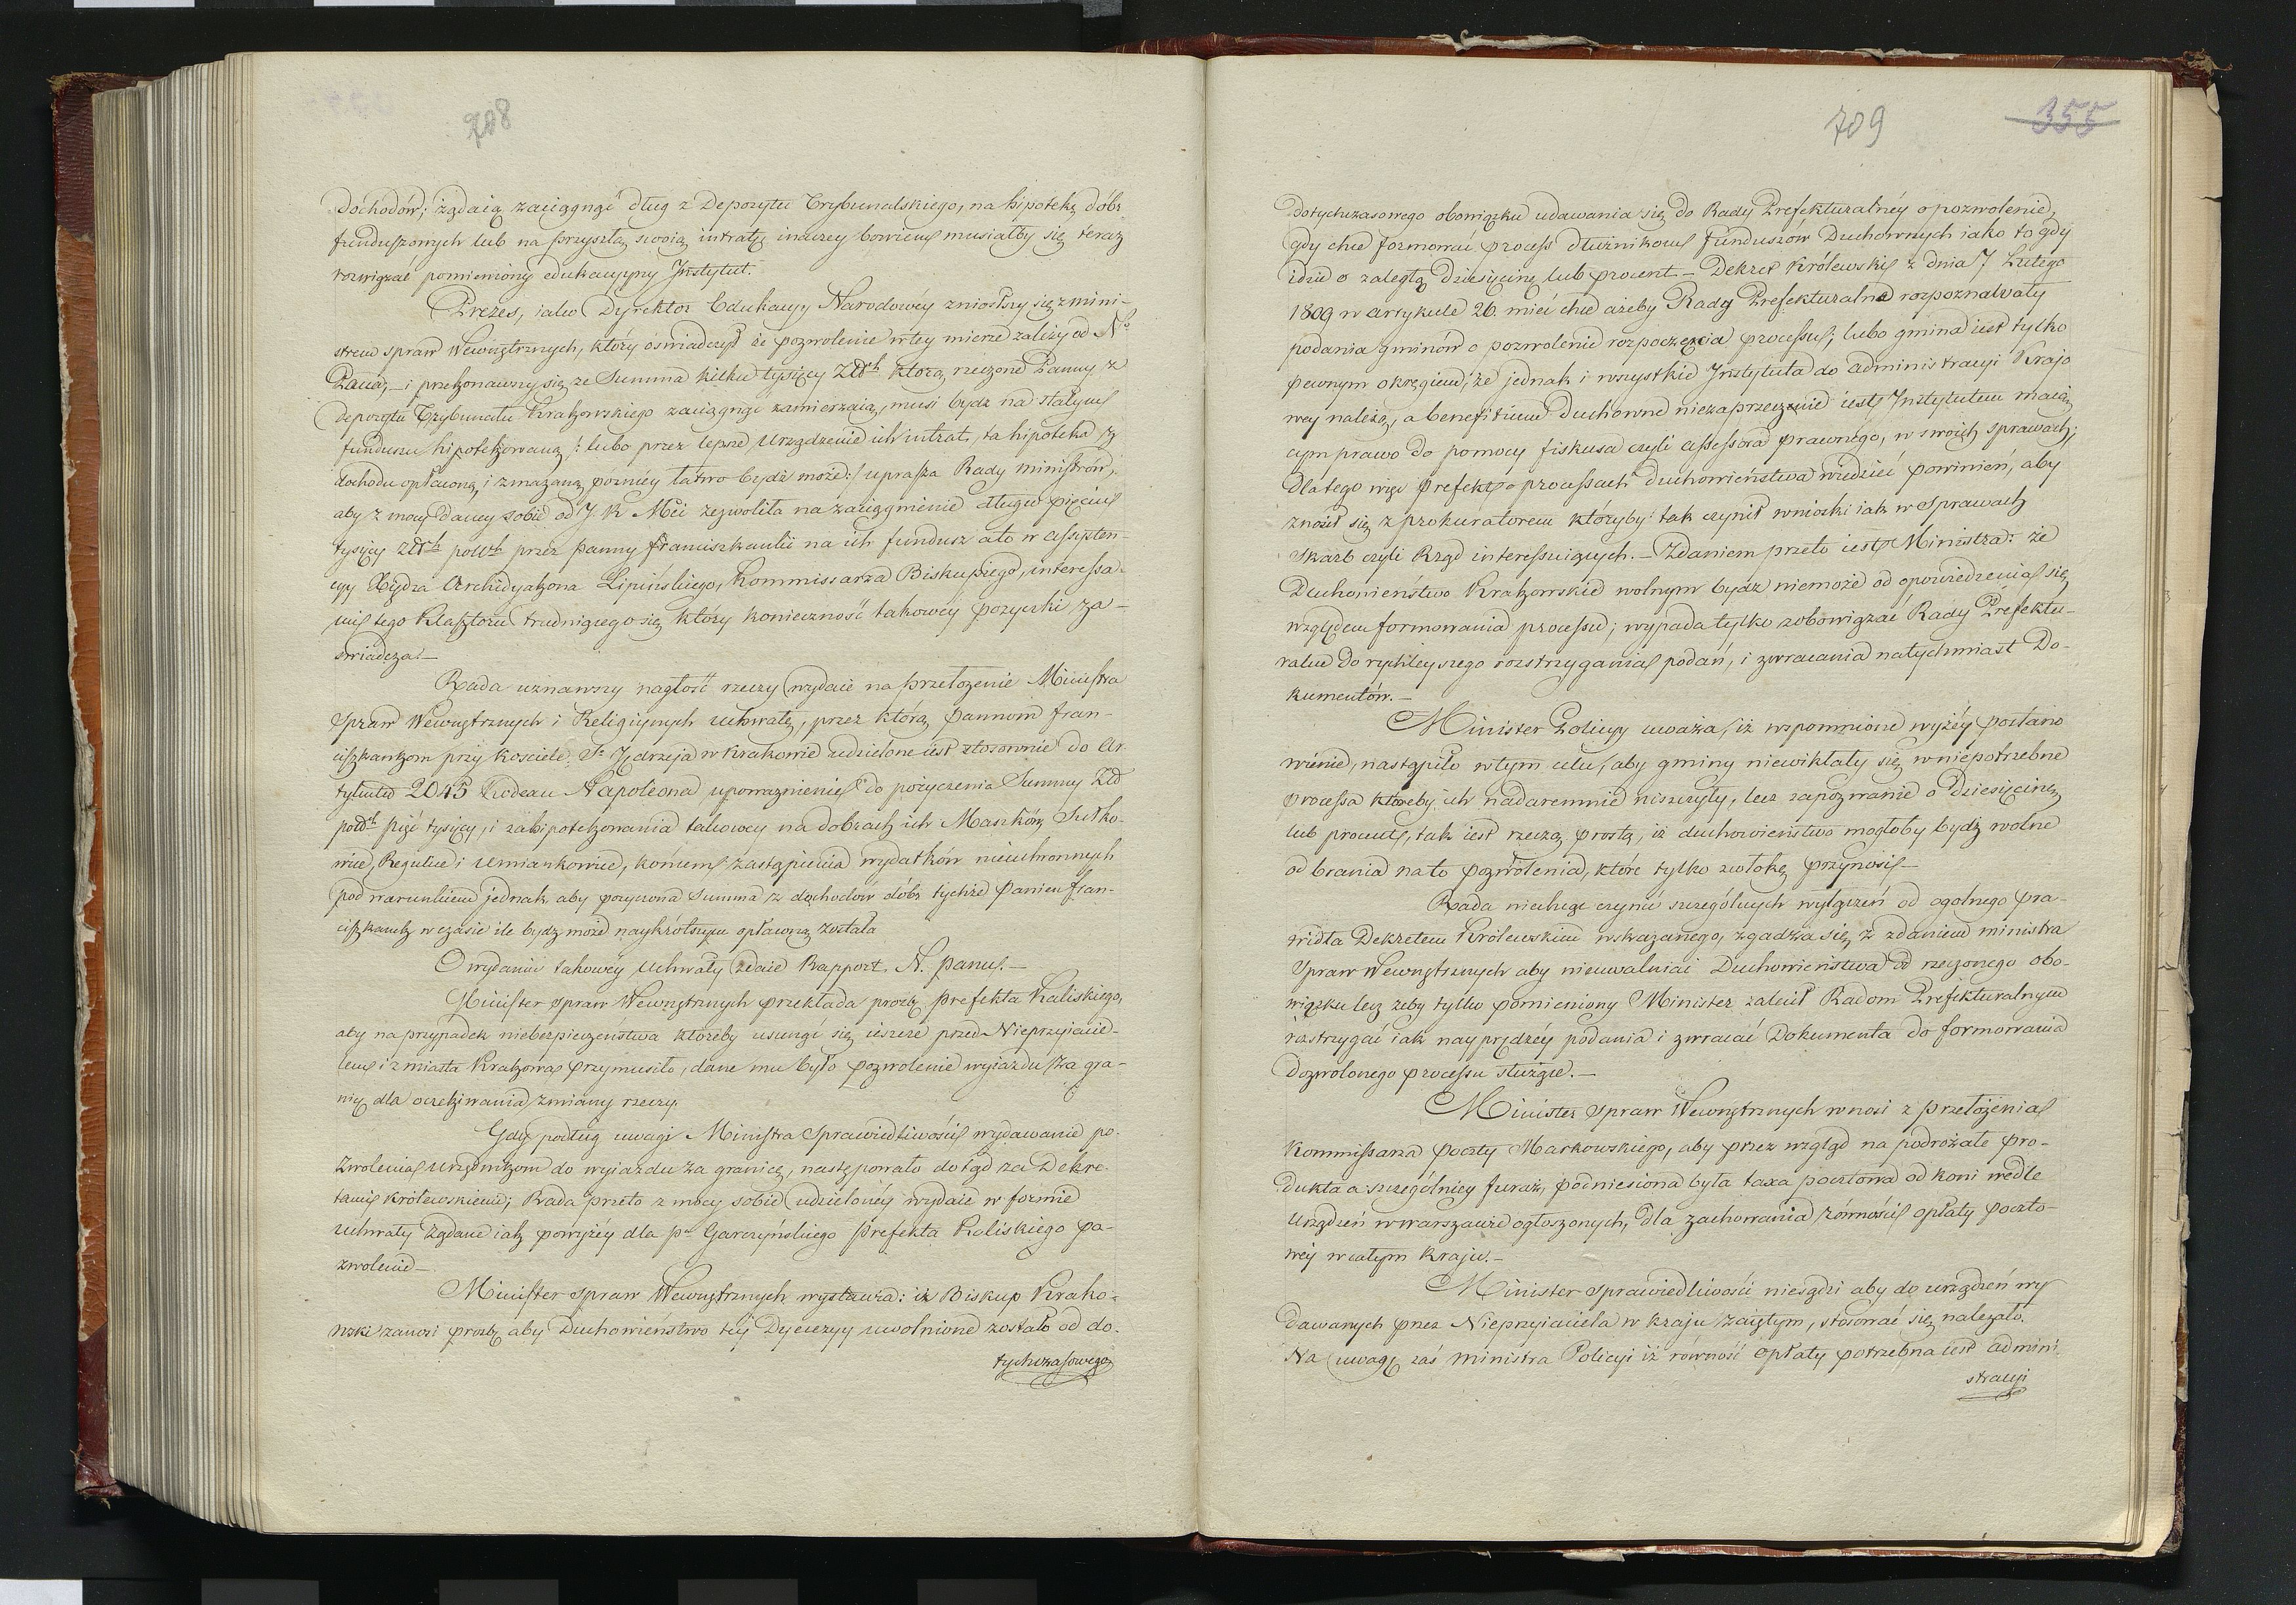 708
dochodów; żądaią zaciągngć dług z Depozytu Trybunalskiego, na hipotekę dóbr
funduszowych lub na przyszłą swoią intratę inaczey bowiem musiałby się teraz
rozwiązać pomieniony edukacyyny Instytut.
Prezes, iako Dyrektor Edukacyy Narodowéy zniosłszy się z mini-
strem spraw Wewnętrznych, który oświadczył że pozwolenie w tey mierze zależy od Nº
Pana, – i przekonawszy się ze Summa kilku tysięcy Złłch którą rzeczone Panny z
depozytu Trybunału Krakowskiego zaciągngć zamierzaią, musi bydz na stałym
funduszu hipotekowaną /: lubo przez lepsze Urządzenie ich intrat, ta hipoteka z
dochodu opłaconą, i zmazaną póznièy łatwo bydź może:/ uprasza Rady ministrów,
aby z mocy daney sobie od J. K Mci zezwoliła na zaciągnienie długu pięciu
tysięcy złłch polłch przez panny franciszkanki na ich fundusz a to w assysten-
cyy Xiędza Archidyakona Lipińskiego, Kommissarza Biskupiego, interessa-
mi tego Klasztoru trudniącego się który konieczność takowéy pozyczki za-
swiadcza. –
Rada uznawszy nagłość rzeczy wydaie na przełożenie Ministra
Spraw Wewnętrznych i Religiynych uchwałę, przez którą pannom fran-
ciszkankom przy kosciele Sº Jędrzeja w Krakowie udzielone iest stosownie do Ar
tykułu 2045 Kodexu Napoleona upoważnienie do pożyczenia Summy Złł
polłch pięć tysięcy, i zahipotekowania takowey na dobrach ich Maszków Sułko-
wice, Regulice i Umiankowice, końcem zastąpienia wydatków nieuchronnych
pod warunkiem jednak, aby pozyczona Summa z dochodów dóbr tychże Panien fran-
ciszkanek w czasie ile bydz może naykrótszym opłaconą została
O wydaniu takowéy Uchwały zdaie Rapport N. panu. –
Minister spraw Wewnętrznych przekłada prozbę prefekta Kaliskiego,
aby na przypadek niebezpieczeństwa któreby usungć się ieszcze przed Nieprzyiacie-
lem i z miasta Krakowa przymusiło, dane mu było pozwolenie wyiazdu za gra-
nicę dla oczekiwania zmiany rzeczy.
Gdy podług uwagi Ministra Sprawiedliwości wydawanie po-
zwolenia urzędnikom do wyiazdu za granicę, następowało dotąd za Dekre-
tami królewskiemi; Rada przeto z mocy sobie udzielonéy wydaie w formie
Uchwały żądane iak powyżéy dla pa Garczyńskiego Prefekta Kaliskiego po-
zwolenie –
Minister spraw Wewnętrznych wystawia: iż Biskup Krako-
wski zanosi prozbę aby Duchowieństwo téj Dyecezyy uwolnione zostało od do-
tychczasowego
709
355
dotychczasowego obowiązku udawania się do Rady Prefekturalnéy o pozwolenie,
gdy chce formować process dłużnikom funduszów Duchownych iako to gdy
idzie o zaległą dziesięcinę lub procent – Dekret Królewski z dnia 7 Lutego
1809 w artykule 26. mieć chce ażeby Rady Prefekturalne rozpoznawały
podania gminów o pozwolenie rozpoczęcia processu; lubo gmina iest tylko
pewnym okręgiem, że jednak i wszystkie Instytuta do administracyi Krajo
wey należą, a beneficium Duchowne niezaprzeczenie iest Instytutem maią
cym prawo do pomocy fiskusa czyli assessora prawnego, w swoich sprawach;
Dlatego więc Prefekt o processach Duchowieństwa wiedzieć powinien, aby
znosił się z prokuratorem któryby tak czynił wnioski iak w Sprawach
Skarb czyli Rząd interessuiących. – Zdaniem przeto iest Ministra: że
Duchowieństwo Krakowskie wolnym bydz niemoże od opowiedzenia się
względem formowania processu; wypada tylko zobowiązać Rady Prefektu-
ralne do rychleyszego rozstrzygania podań, i zwracania natychmiast Do-
kumentów. –
Minister Policyy uważa, iż wspomnione wyżéy postano
wienie, nastąpiło w tym celu, aby gminy niewikłały się w niepotrzebne
processa któreby ich nadaremnie niszczyły, lecz zapozwanie o dziesięcinę
lub procent, tak iest rzeczą prostą, iż duchowieństwo mogłoby bydź wolne
od brania na to pozwolenia, które tylko zwłokę przynosi –
Rada niechcąc czynić szczególnych wyłączeń od ogolnego pra-
widła Dekretem Królewskim wskazanego, zgadza się z zdaniem ministra
Spraw Wewnętrznych aby nieuwalniać Duchowieństwa od rzeczonego obo-
wiązku lecz żeby tylko pomieniony Minister zalecił Radom Prefekturalnym
rozstrzygać iak nayprędzéy podania i zwracać Dokumenta do formowania
dozwolonego processu służące. –
Minister Spraw Wewnętrznych wnosi z przełożenia
Kommissarza Poczty Markowskiego, aby przez wzgląd na podrożałe pro-
dukta a szczególniey furaż, podniesiona była taxa pocztowa od koni wedle
Urządzeń w warszawie ogłoszonych, dla zachowania równości opłaty poczto-
wéy w całym kraju. –
Minister sprawiedliwości niesądzi aby do urządzeń wy
dawanych przez Nieprzyiaciela w kraju zaiętym, stosować się należało.
Na uwagę zaś Ministra Policyi iż równość opłaty potrzebna iest admini-
stracyi